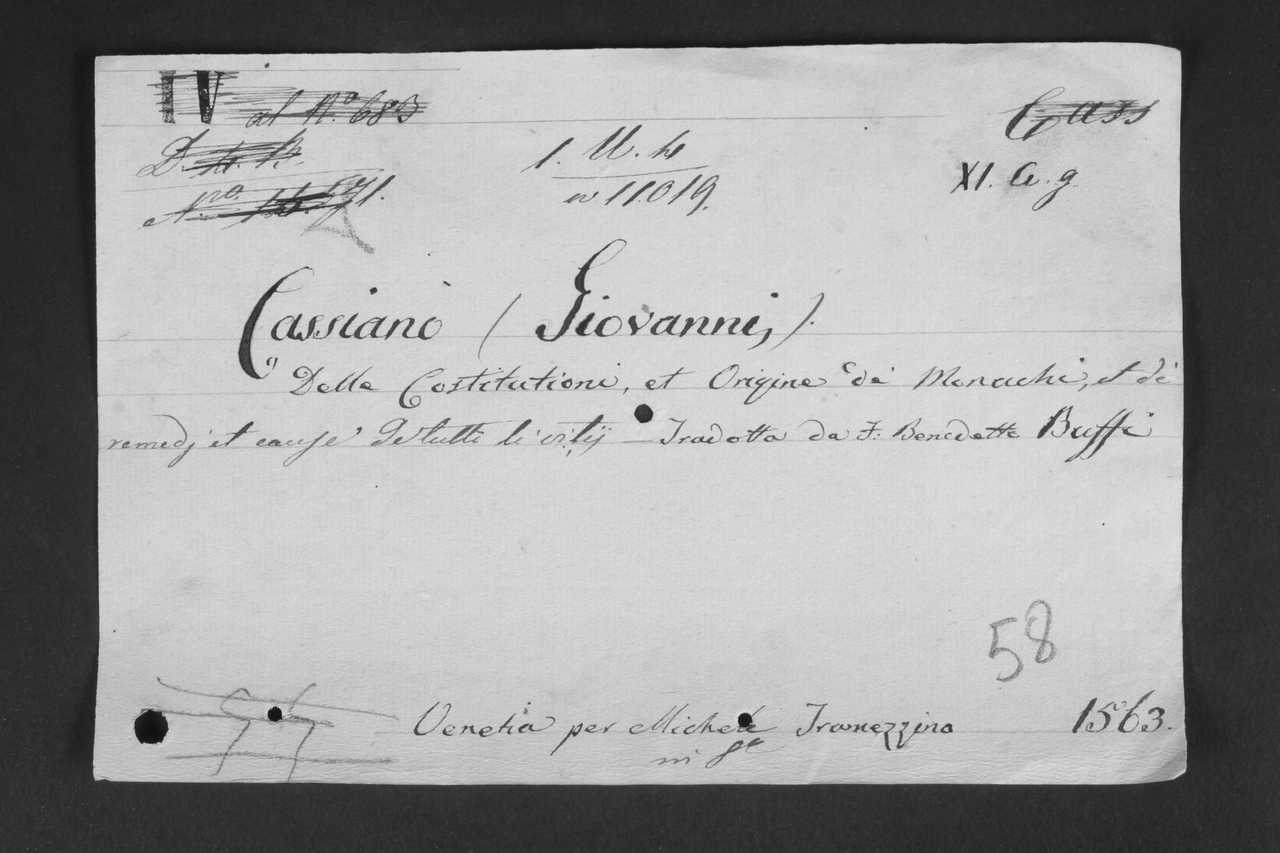 IV al Nº 683
Cass
D.
1. U. 4
XI. G. g
Nro.
11019.
Cassiano (Giovanni,).
" Delle Costitutioni, et Origine de' Monachi, et de'
remedj et cause de tutti li vitij — Tradotta da F: Benedetto Buffi
58
Venetia per Michele Tramezzino 1563.
in 4º